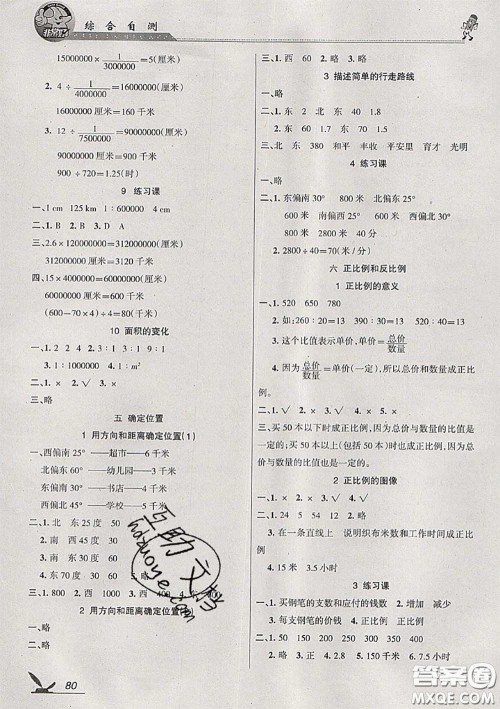 综合自测
15000000×1/3000000=5(厘米)
2. 4÷1/4000000=16000000(厘米)
16000000厘米=160千米
3. 12÷1/7500000=90000000(厘米)
90000000厘米=900千米
900÷720=1.25(时)
9 练习课
一、1cm 125km 1:600000 6cm
二、1. B 2. A 3. D A
三、2.6×120000000=312000000(厘米)
312000000厘米=3120千米
四、10×6000000=60000000(厘米)
60000000厘米=600千米
(600-70×4)÷4=80(千米)
10 面积的变化
一、1. 1 2 4 2. 1:3 1:9 1:1
3. 1:1000000 4. 1:m²
二、1. × 2. ✓ 3. ×
三、略
五 确定位置
1 用方向和距离确定位置(1)
一、西偏南50°——超市——6千米
北偏东60°——幼儿园——3千米
东偏南30°——书店——4千米
西偏北50°——学校——5千米
二、1. 北 东25度 50
2. 南 西45度
3. 西 南30度
4. 东70度 30
三、1. 800 2. 西 400
2 用方向和距离确定位置
一、略
二、略
80
三、1. 西 60 2. 略 3. 略
3 描述简单的行走路线
一、略
二、1. 东 2 北 东 40 1.8
2. 东 北 东 70 1.5
三、北 东 380 和平 丰收 平安里 育才 光明
4 练习课
一、略
二、1. 东偏南30° 800米 北偏东25°
600米 南偏西25° 600米 西偏北30°
800米 2800米 40
2. 2800÷40=70(米/分)
六 正比例和反比例
1 正比例的意义
一、1. 520 650 780
2. 如:260÷20=13 390÷30=13 520÷40=13
3. 这个比值表示单价,单价=总价/数量
4. 因为总价/数量=单价(一定),所以总价与数量成正比例。
二、1. ✓ 2. × 3. ✓ 4. ×
三、买50本以下时成正比例,总价与数量的比值是一定的;买50本以上时(包括50本)也成正比例,总价与数量的比值也是一定的。
2 正比例的图像
一、1. × 2. × 3. ✓ 4. ×
二、1. 24 5 54 12 2. 略
3. 在一条直线上 说明织布米数和工作时间成正比例
4. 15米 3.5小时
3 练习课
一、1. 买钢笔的支数和应付的钱数 2. 增加 减少
3. 每支钢笔的价钱 4. 正比例
二、1. × 2. ✓ 3. × 4. ✓
三、1. 略 2. 正 3. 略 4. 135 5. 6 6. 7.5小时
互助文档
hdzuoye.com
答案圈
MXQE.COM